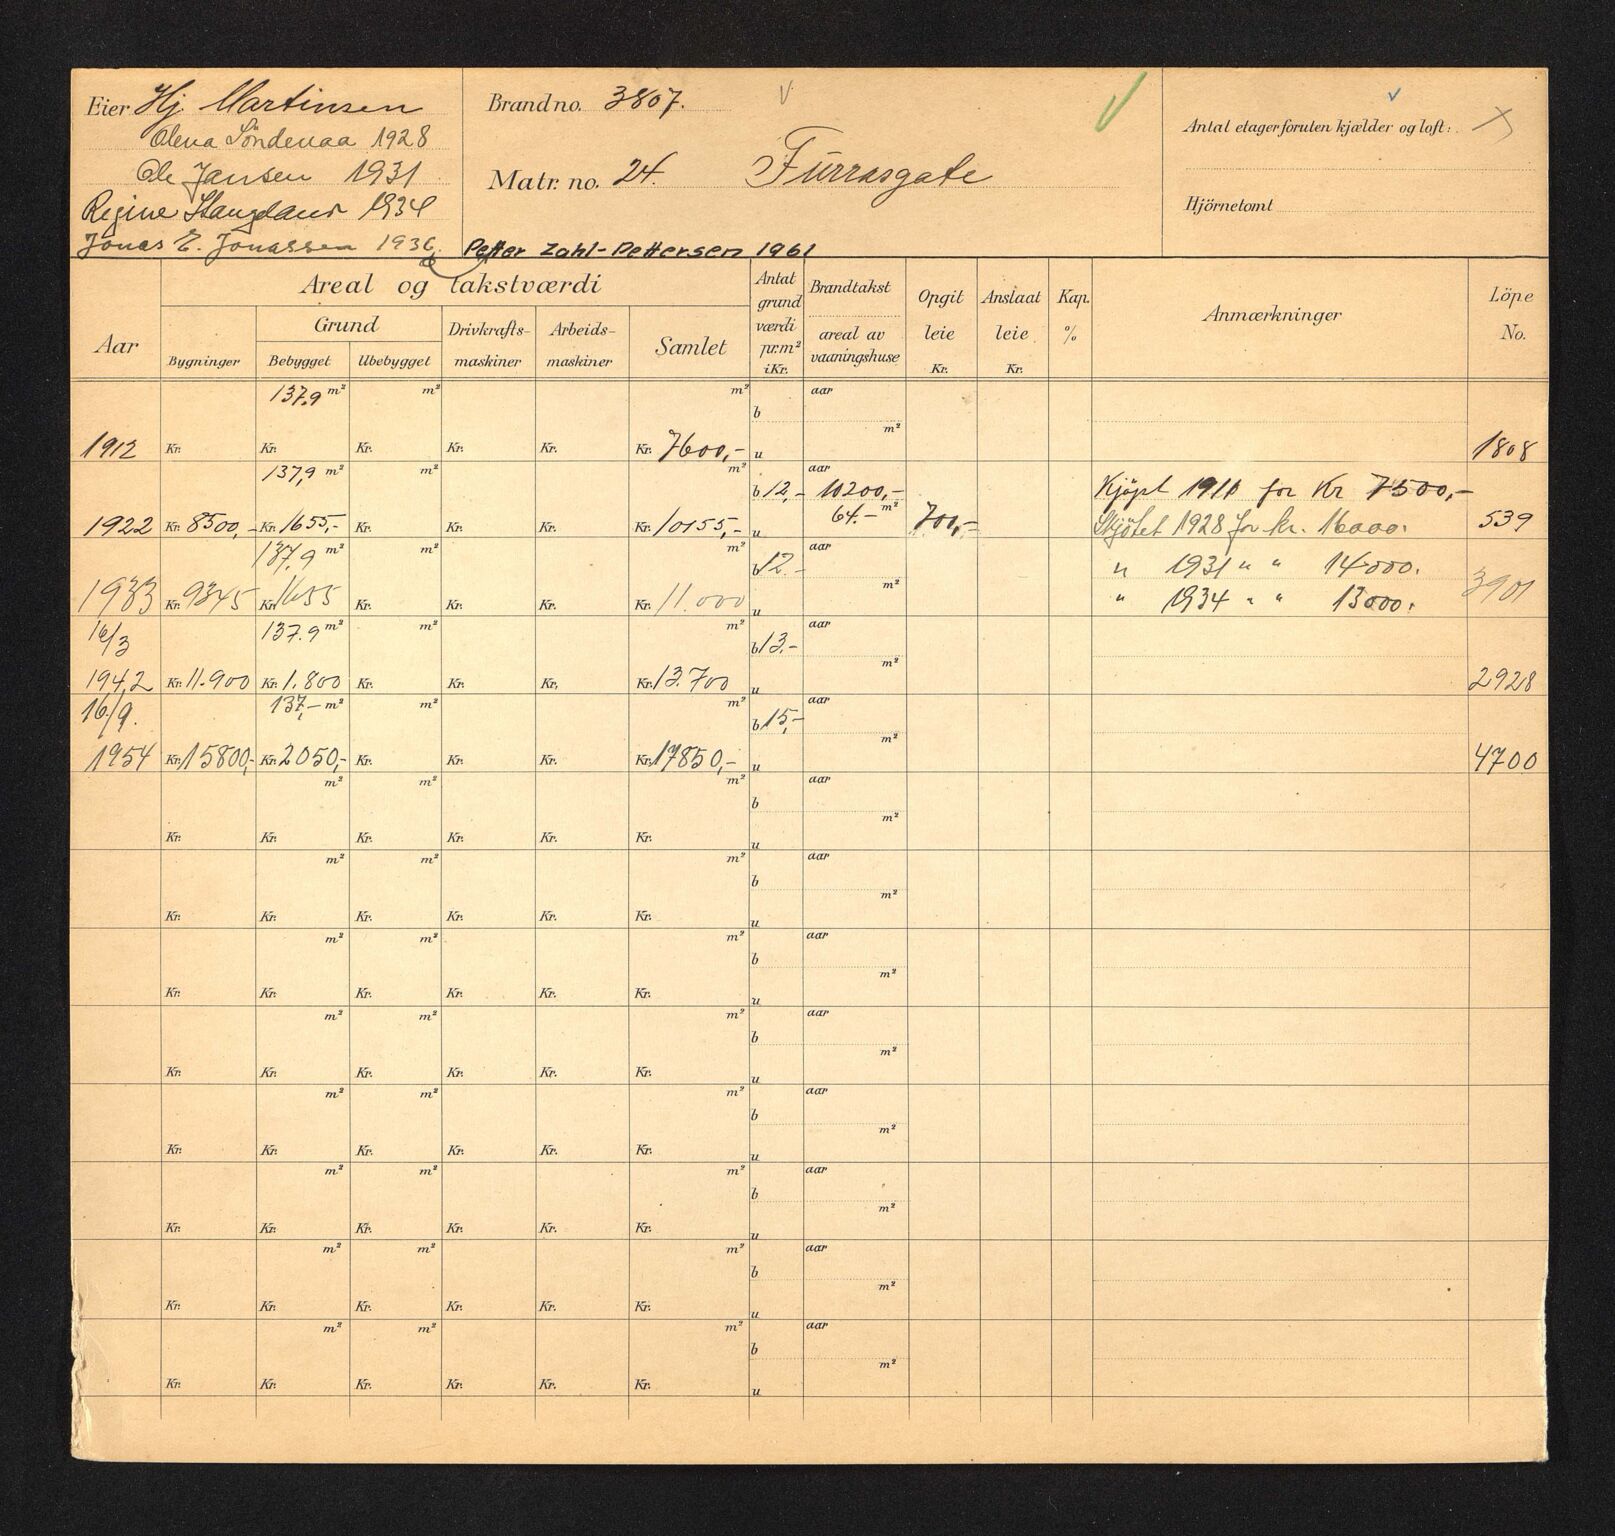 Eier Hj. Martinsen
Olena Söndenaa 1928
Ole Jansen 1931
Regine Haugland 1934
Jonas E. Jonassen 1936, Petter Zahl-Pettersen 1961
Brand no. 3807.
Matr. no. 24. Furrasgate
Antal etager foruten kjælder og loft:
Hjörnetomt
Aar
Areal og takstværdi
Bygninger
Grund
Bebygget Ubebygget
Drivkrafts-
maskiner
Arbeids-
maskiner
Samlet
Antat
grund
værdi
pr.m²
i Kr.
Brandtakst
areal av
vaaningshuse
Opgit
leie
Kr.
Anslaat
leie
Kr.
Kap.
%
Anmærkninger
Löpe
No.
137,9 m² m² m² aar
b
m²
1912 Kr. Kr. Kr. Kr. Kr. Kr. 7600,- u 1808
137,9 m² m² m² aar
b 12,- 10200,- Kjöpt 1911 for Kr 7500,-
64.- m²
1922 Kr. 8500,- Kr. 1655,- Kr. Kr. Kr. Kr. 10155,- u 700,- Skjötet 1928 for kr. 16000. 539
137.9 m² m² m² aar
b 12.- " 1931 " " 14000.
m²
1933 Kr. 9345 Kr. 1655 Kr. Kr. Kr. Kr. 11.000 u " 1934 " " 13000. 3901
16/3 137.9 m² m² m² aar
b 13.-
m²
1942 Kr. 11.900 Kr. 1.800 Kr. Kr. Kr. Kr. 13.700 u 2928
16/9. 137,- m² m² m² aar
b 15,-
m²
1954 Kr. 15800,- Kr. 2050,- Kr. Kr. Kr. Kr. 17850,- u 4700
m² m² m² aar
b
m²
Kr. Kr. Kr. Kr. Kr. Kr. u
m² m² m² aar
b
m²
Kr. Kr. Kr. Kr. Kr. Kr. u
m² m² m² aar
b
m²
Kr. Kr. Kr. Kr. Kr. Kr. u
m² m² m² aar
b
m²
Kr. Kr. Kr. Kr. Kr. Kr. u
m² m² m² aar
b
m²
Kr. Kr. Kr. Kr. Kr. Kr. u
m² m² m² aar
b
m²
Kr. Kr. Kr. Kr. Kr. Kr. u
m² m² m² aar
b
m²
Kr. Kr. Kr. Kr. Kr. Kr. u
m² m² m² aar
b
m²
Kr. Kr. Kr. Kr. Kr. Kr. u